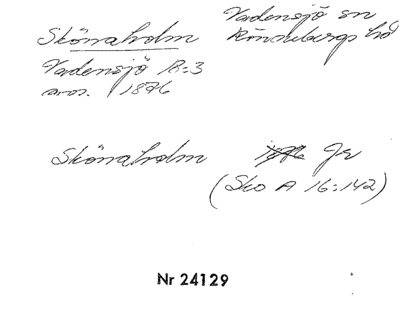 Skönaholm Vadensjö sn
Rönnebergs hd
Vadensjö 12:3
avs. 1876
Skönaholm Jr
(Sko A 16:142)
Nr 24129